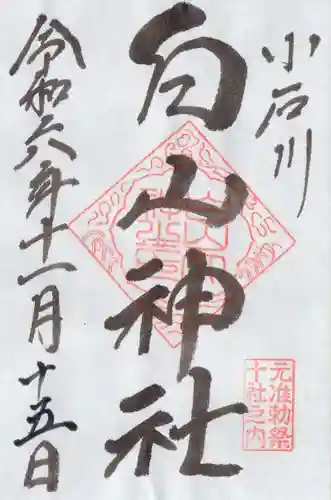 小石川
白山神社
元准勅祭
十社之内
令和六年十一月十五日